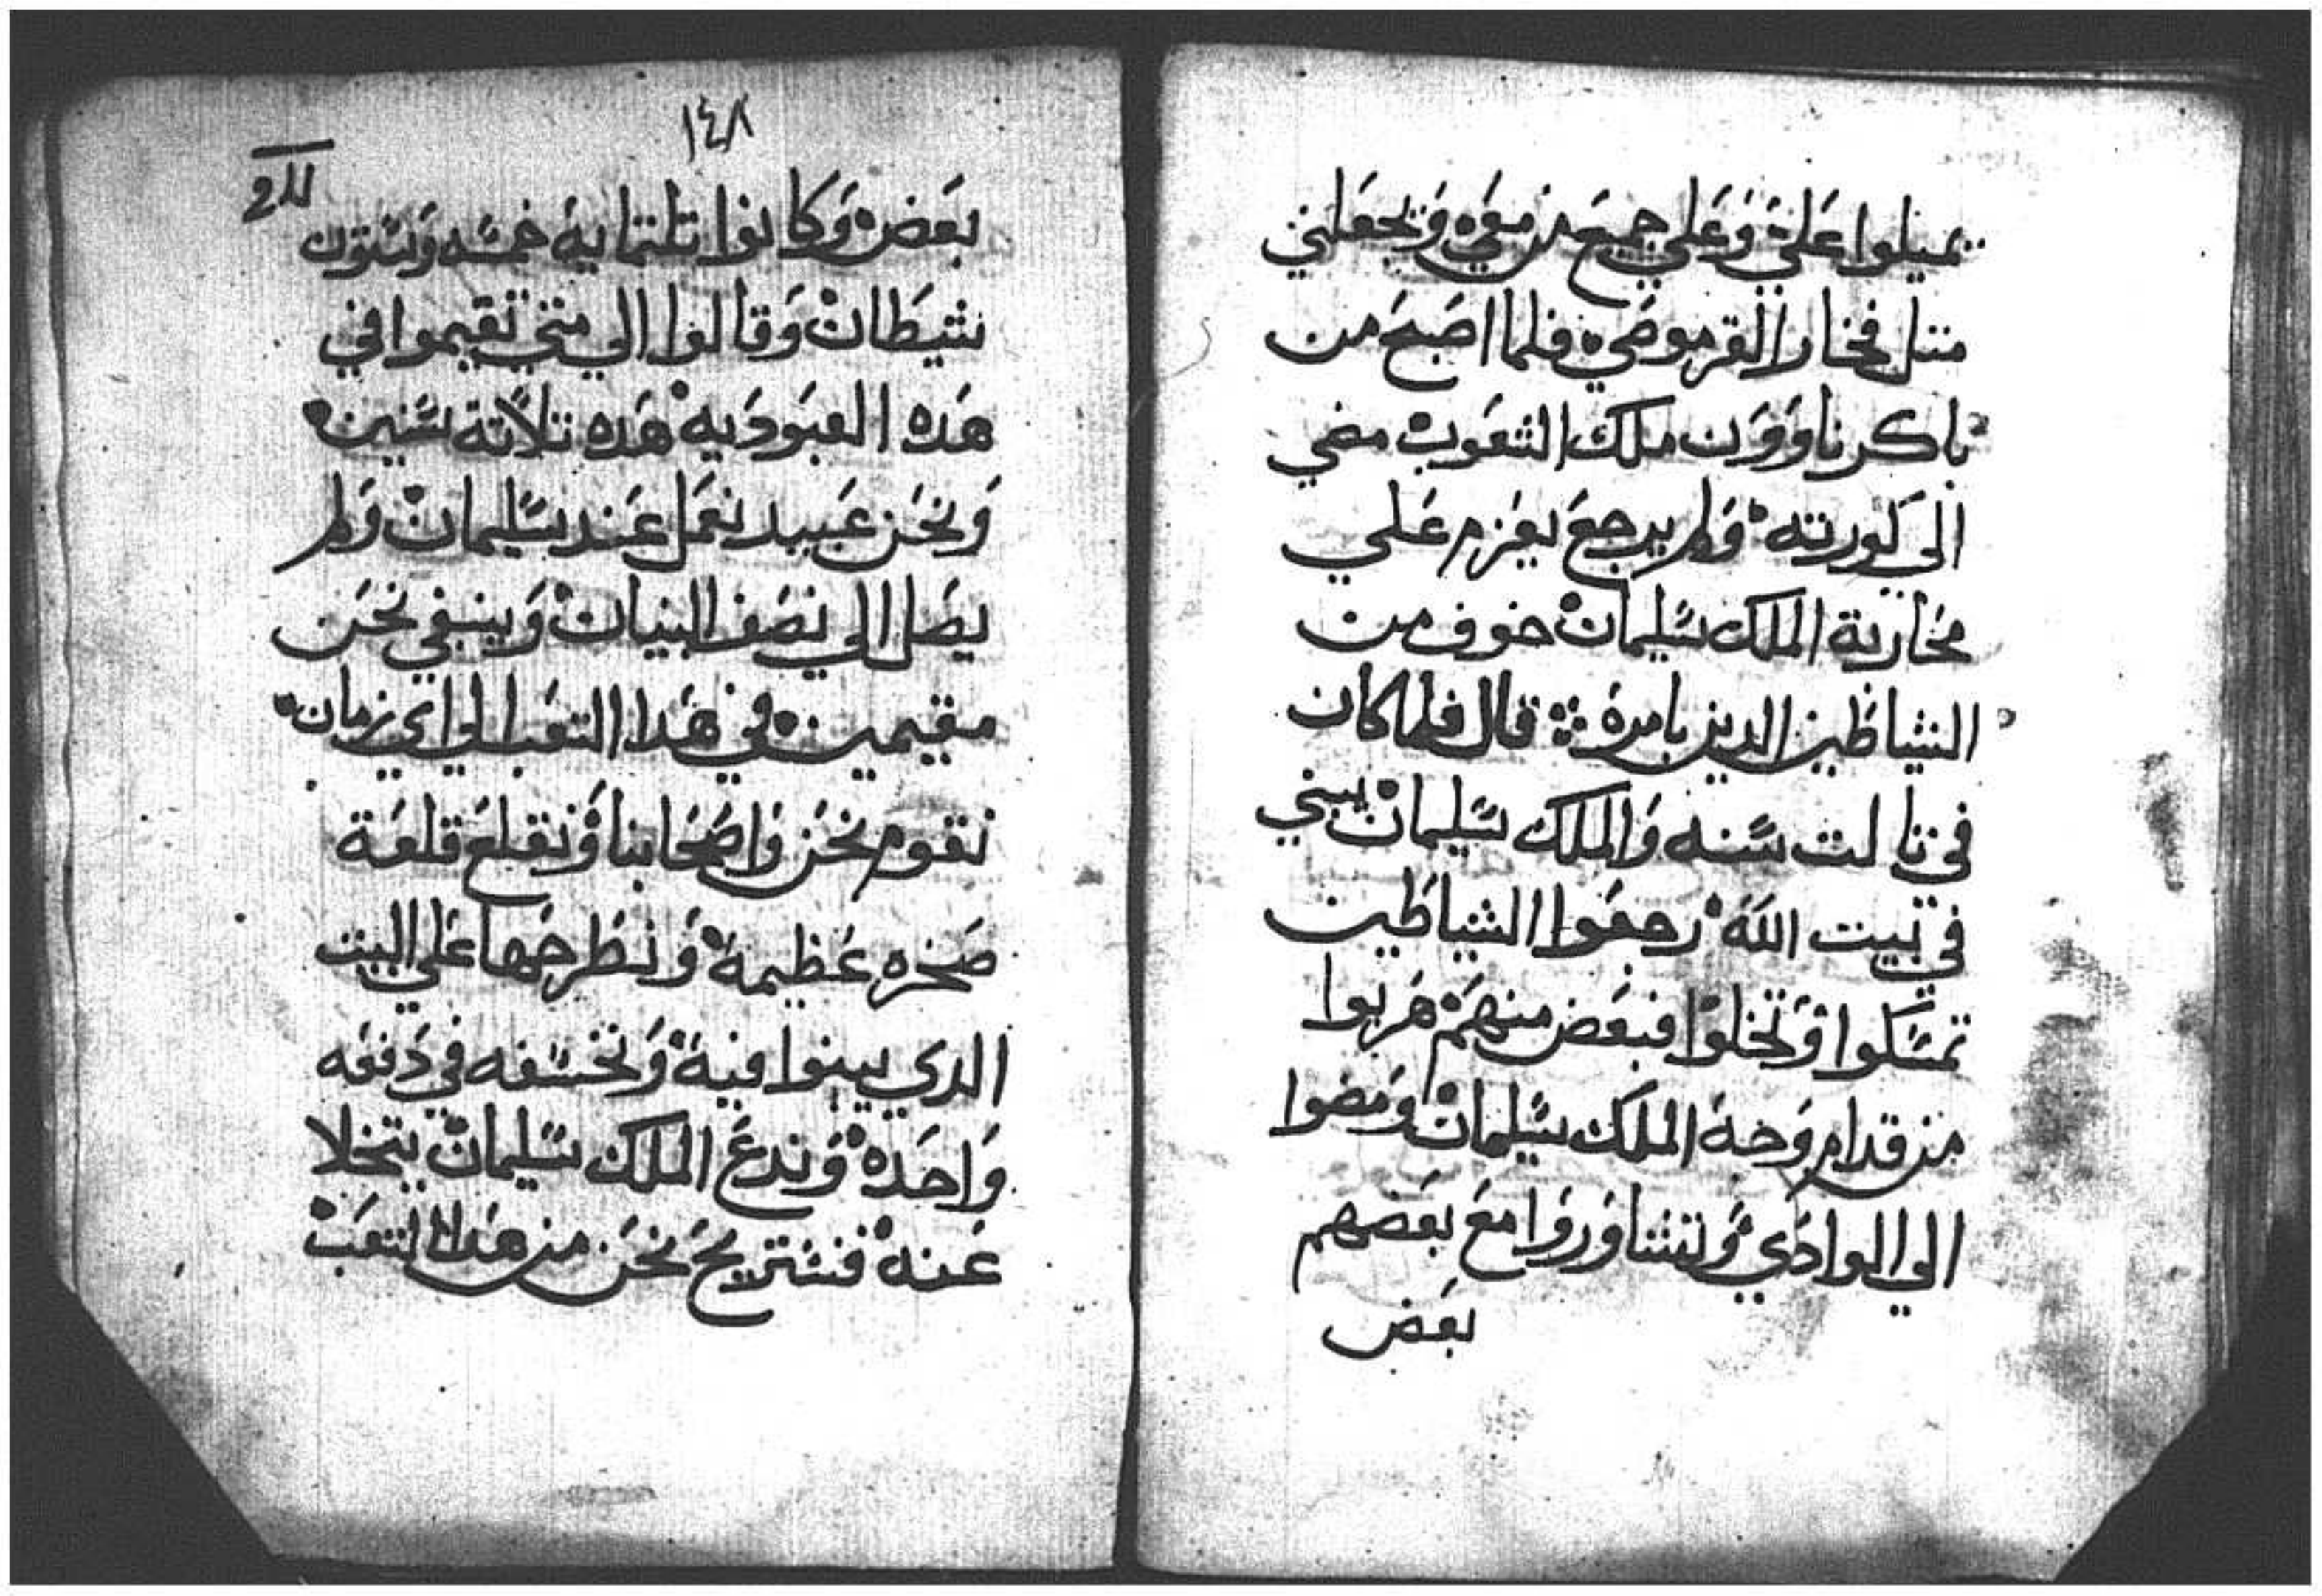 يميلوا علي وعلي جميع من معي ويجعلني
متل فخار القرموصي فلما اصبح من
باكر ناووَن ملك الشعوب مضي
الي كورته ولم يرجع يعزم علي
محاربة الملك سليمان خوف من
الشياطين الدين بامره قال فلما كان
في تالت سنه والملك سليمان يبني
في بيت الله رجعوا الشياطين
تمسكوا وتخلوا فبعض منهم هربوا
من قدام وجه الملك سليمان ومضوا
الي الوادي وتشاوروا مع بعضهم
بعض
١٤٨
بعض وكانوا تلتماية خمسه وستون
شيطان وقالوا الي متي تقيموا في
هده العبوديه هده تلاتة سنين
ونحن عبيد نعمل عند سليمان ولم
يصل الي نصف البنيان وينبغي نحن
مقيمين في هدا التعب الي اي زمان
نقوم نحن واصحابنا ونقلع قلعة
صخره عظيمة ونطرحها علي البيت
الدي يبنوا فيه ونخسفه في دفعه
واحده وندع الملك سليمان يتخلا
عنه فنستريح نحن من هدا التعب